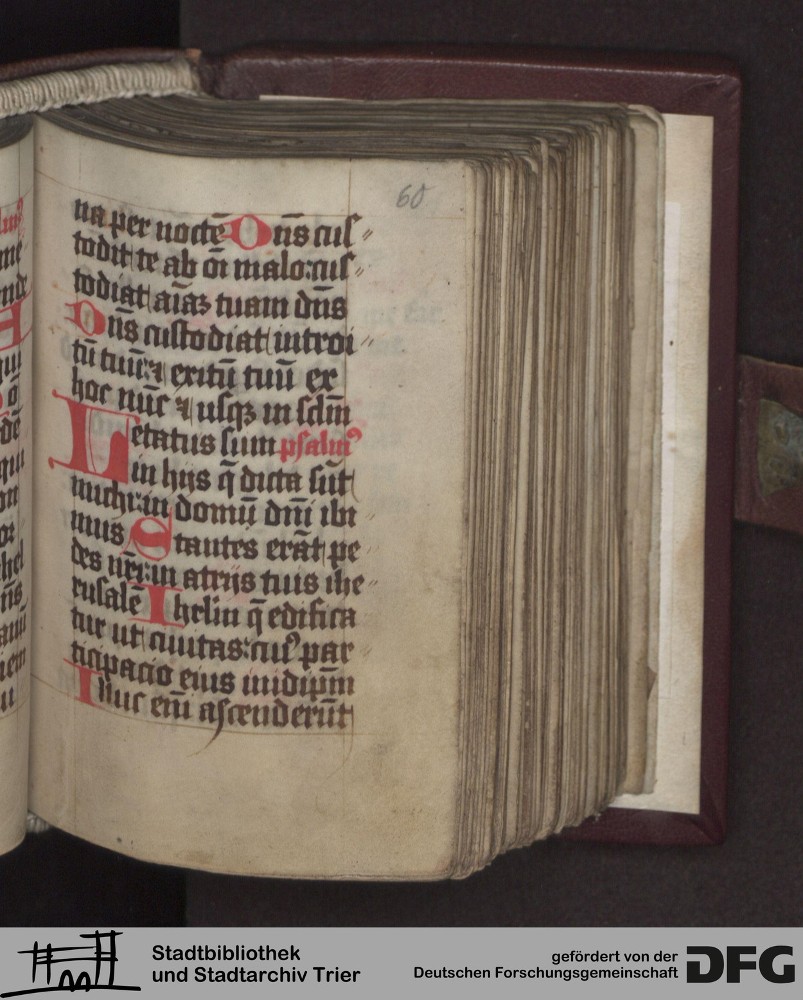 60
na per noctē Dn̄s cus〃
todit te ab oī malo:cus〃
todiat aīaʒ tuam dn̄s
Dn̄s custodiat introi〃
tū tuū:⁊ exitū tuū ex
hoc nūc ⁊ usqʒ in sclm̄
Letatus sum psalmꝰ
in hijs q̄ dicta sūt
michi:in domū dn̄i ibi
mus Stantes erāt pe〃
des nr̄i:in atrijs tuis ihe〃
rusalē Ihrlm q̄ edifica
tur ut ciuitas:cuiꝰ par〃
ticipacio eius inidip̄m
Illuc eni̅ ascenderūt
Stadtbibliothek
und Stadtarchiv Trier
gefördert von der
Deutschen Forschungsgemeinschaft
DFG